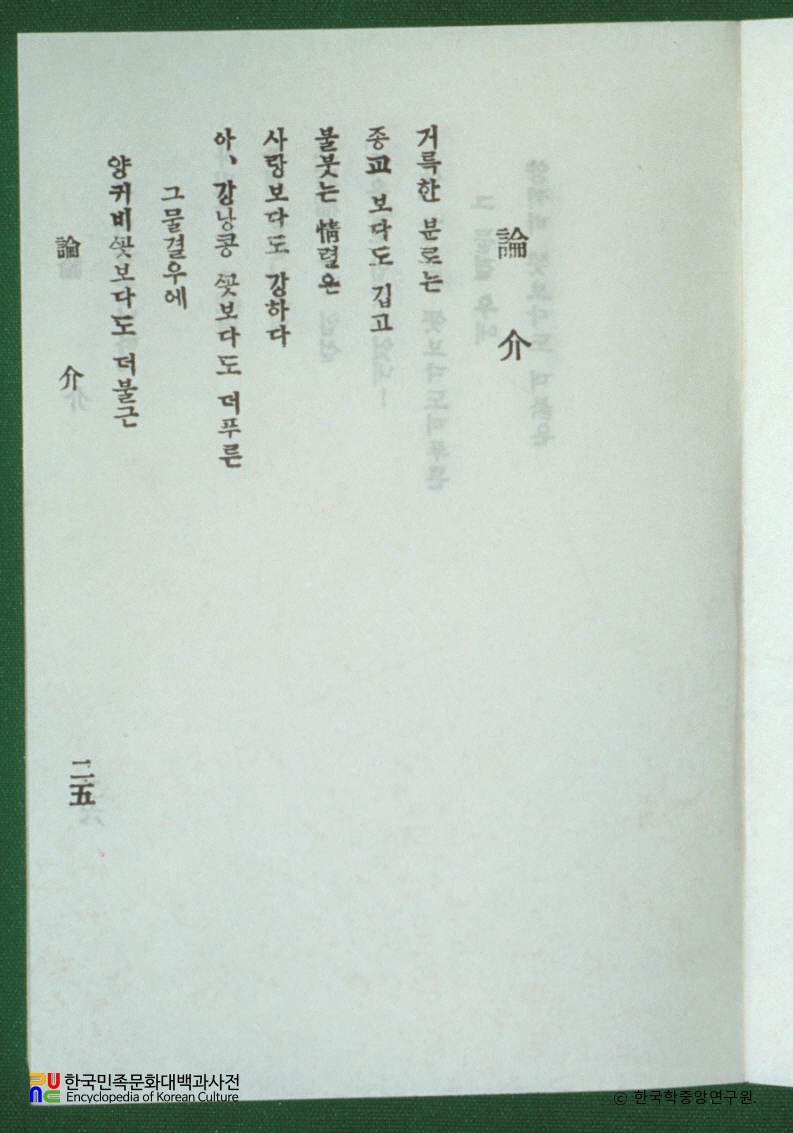 論介
거륵한 분로는
종교보다도 깁고
불붓는 情렬은
사랑보다도 강하다
아、강낭콩 ᄭᅩᆺ보다도 더푸른
그물결우에
양귀비 ᄭᅩᆺ보다도 더불근
論介
二五
한국민족문화대백과사전
Encyclopedia of Korean Culture
© 한국학중앙연구원.